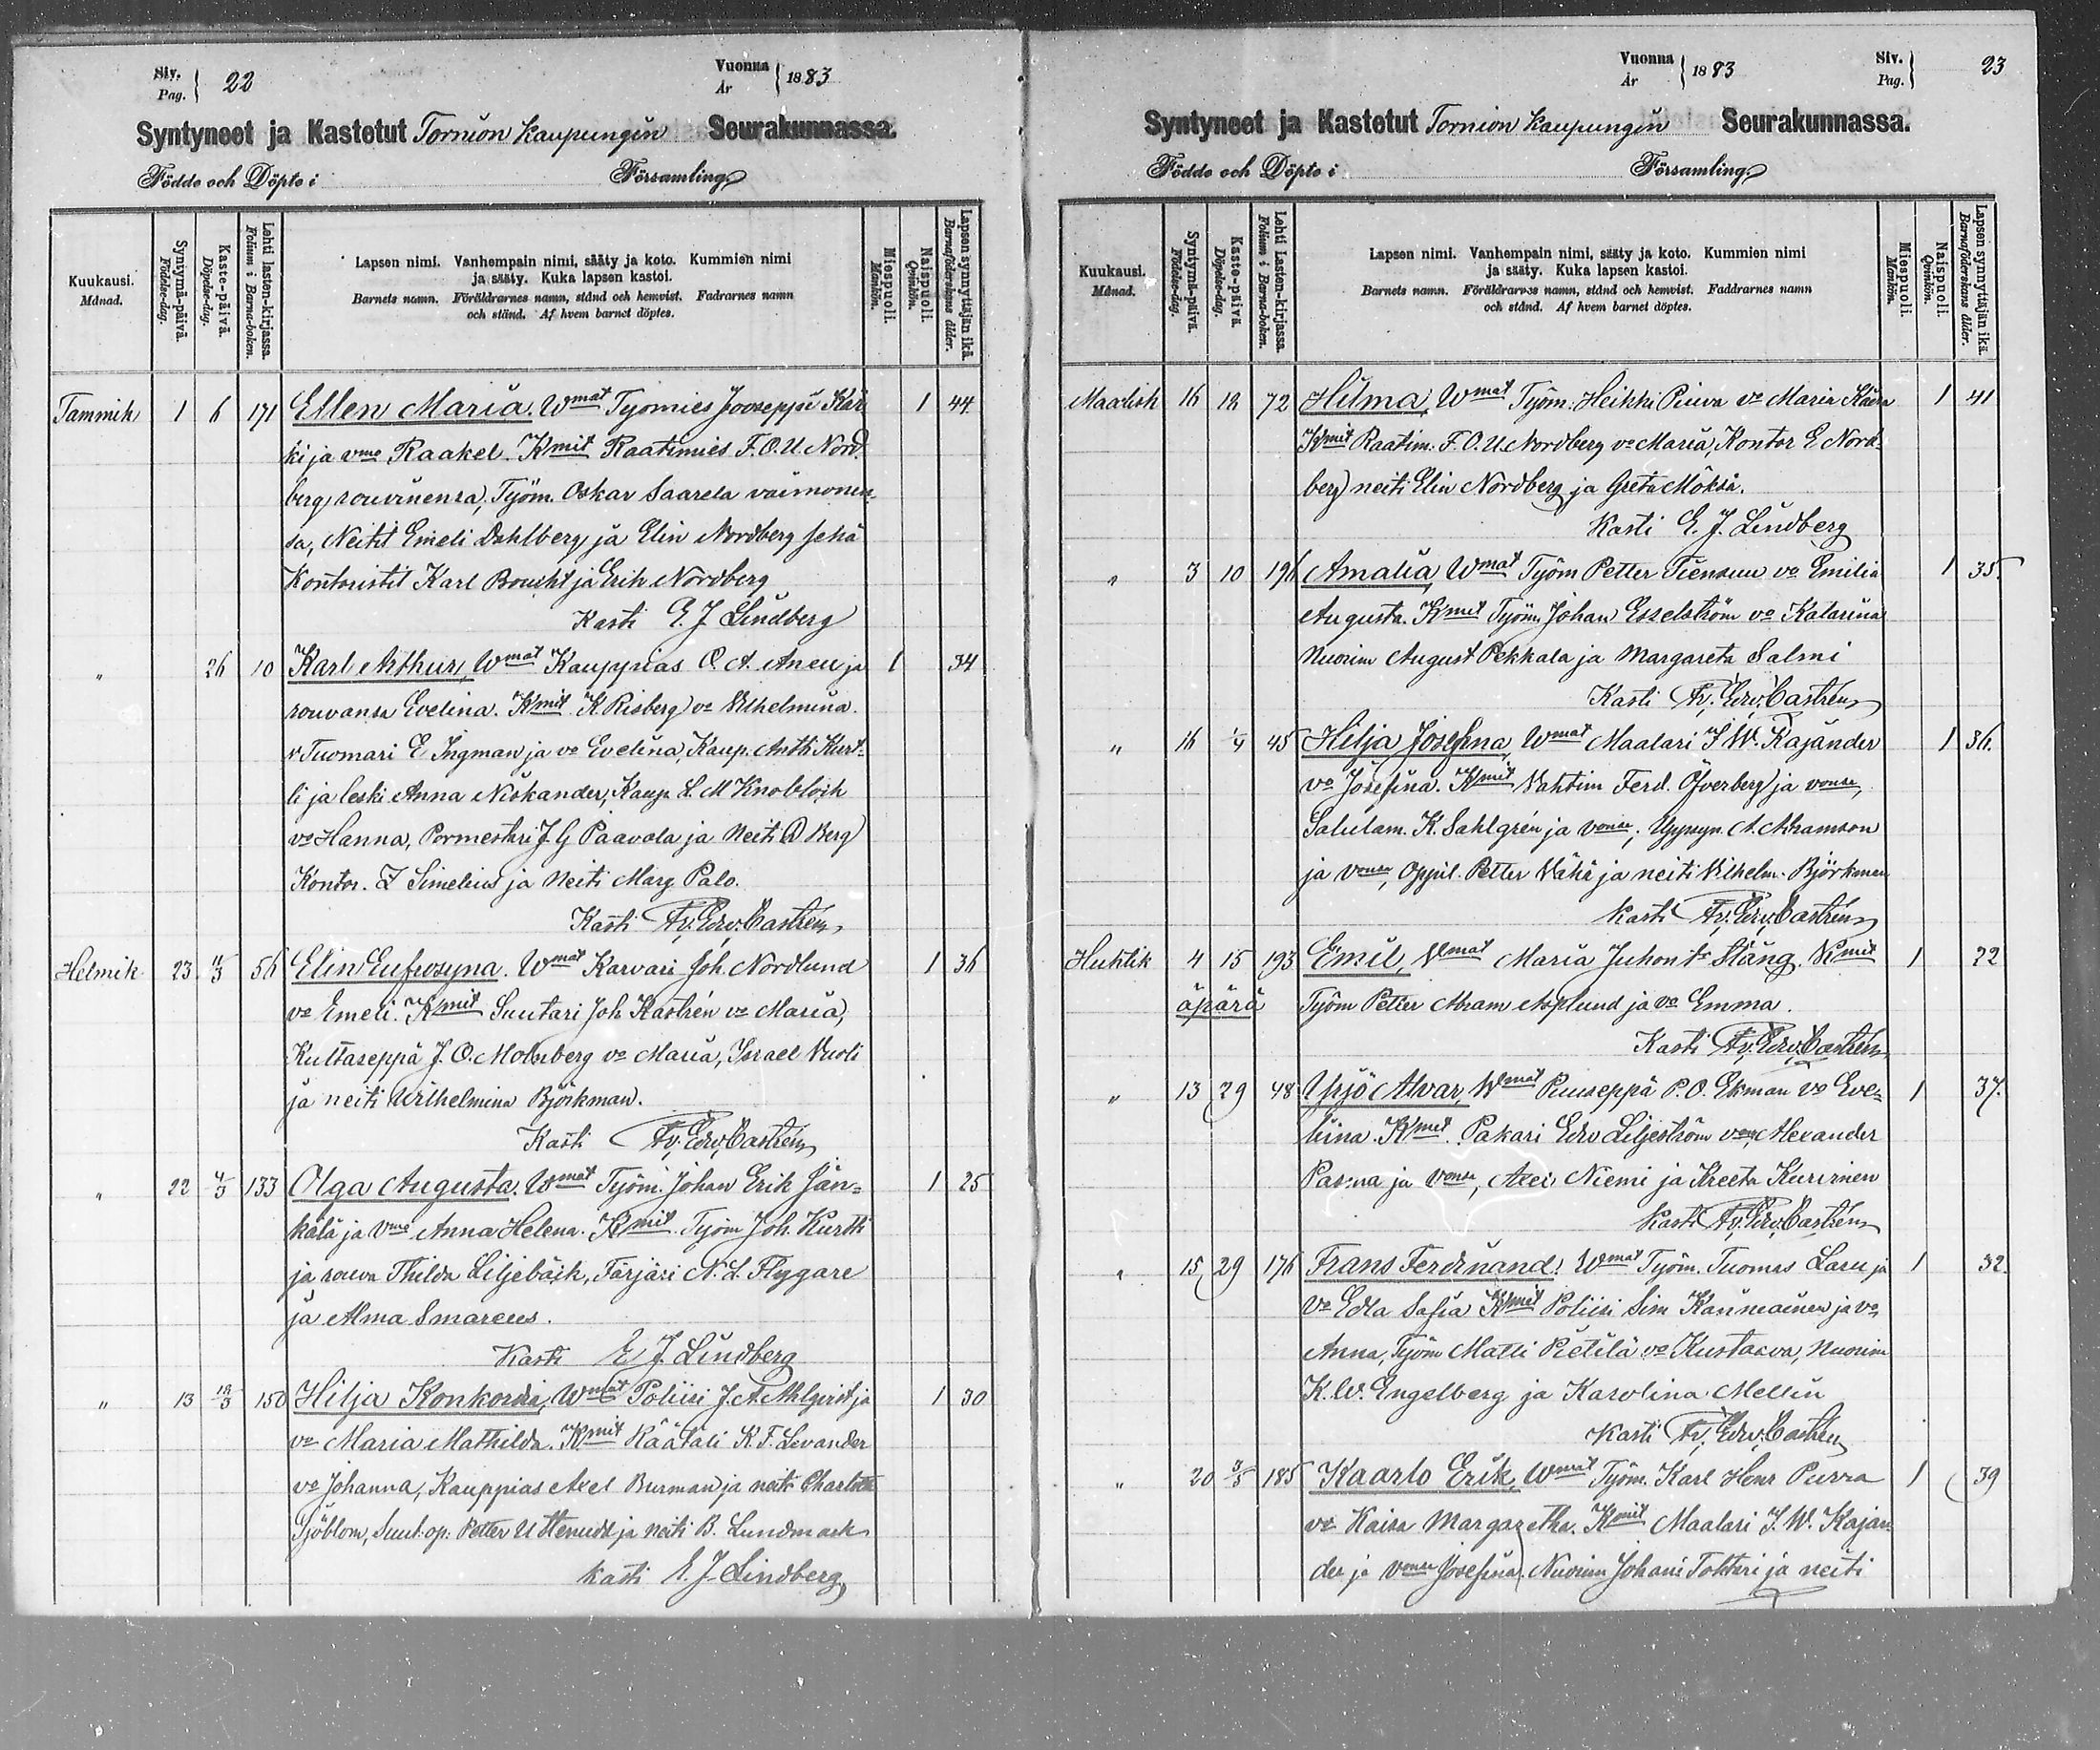 Siv. Pag. 22
Vuonna År 1883
Syntyneet ja Kastetut Tornion Kaupungin Seurakunnassa.
Födde och Döpte i Församling
Kuukausi. Månad.
Syntymä-päivä. Födelse-dag.
Kaste-päivä. Döpelse-dag.
Lehti lasten-kirjassa. Folium i Barna-boken.
Lapsen nimi. Vanhempain nimi, sääty ja koto. Kummien nimi
ja sääty. Kuka lapsen kastoi.
Barnets namn. Föräldrarnes namn, stånd och hemvist. Fadrarnes namn
och stånd. Af hvem barnet döptes.
Miespuoli. Mankön.
Naispuoli. Qvinkön.
Lapsen synnyttäjän ikä. Barnaföderskans ålder.
Tammik 1 6 171 Ellen Maria. Wmat Työmies Jooseppi Kär 1 44
ki ja vmo Raakel. Kmit Raatimies F. O. U. Nord
berg rouvinensa, Työm. Oskar Saarela vaimonen
sa, Neitit Emeli Dahlberg ja Elin Nordberg sekä
Kontoristit Karl Boucht ja Erik Nordberg
Kasti E. J. Lindberg
" 26 10 Karl Arthur, Wmat Kauppias O. A. Aneu ja 1 34
rouvansa Evelina. Kmit K. Risberg vo Wilhelmina.
v Tuomari E Ingman ja vo Evelina, Kaup. Antti Kurt-
li ja leski Anna Niskander, Kaup. L. M Knobloch
vo Hanna, Pormestari J. G Paavola ja Neiti Berg
Kontor. Simelius ja Neiti Marg Palo.
Kasti Fr. Edv. Castrén
Helmik 23 11/3 56 Elin Eufrosyna. Wmat Karvari Joh. Nordlund 1 36
vo Emeli. Kmit Suutari Joh Kastrén vo Maria,
Kultaseppä J. O. Molnberg vo Maria, Israel Vuoli
ja neiti Wilhelmina Björkman.
Kasti Fr. Edv. Castrén
" 22 4/3 133 Olga Augusta. Wmat Työm. Johan Erik Jän=
kälä ja Vmo Anna Helena. Kmit Työm Joh. Kurtti 1 25
ja rouva Thilda Liljebäck, Färjäri N. L. Flyggare
ja Alma Smareus.
Kasti E J. Lindberg
" 13 18/3 150 Hilja Konkordia, Wmat Poliisi J. A. Ahlqvist ja 1 30
vo Maria Mathilda. Kmit Räätäli K. F. Levander
vo Johanna, Kauppias Axel Burman ja neiti Charlotta
Sjöblom, Suut. op. Petter U Stenudd ja neiti B. Lundmark
kasti E. J. Lindberg
Vuonna År 1883
Siv. Pag. 23
Syntyneet ja Kastetut Tornion Kaupungin Seurakunnassa.
Födde och Döpte i Församling
Kuukausi. Månad.
Syntymä-päivä. Födelse-dag.
Kaste-päivä. Döpelse-dag.
Lehti Lasten-kirjassa. Folium i Barna-boken.
Lapsen nimi. Vanhempain nimi, sääty ja koto. Kummien nimi
ja sääty. Kuka lapsen kastoi.
Barnets namn. Föräldrarnes namn, stånd och hemvist. Faddrarnes namn
och stånd. Af hvem barnet döptes.
Miespuoli. Mankön.
Naispuoli. Qvinkön.
Lapsen synnyttäjän ikä. Barnaföderskans ålder.
Maalisk 16 18 72 Hilma, Wmat Työm. Heikki Piuva vo Maria 1 41
Kmit Raatim. F. O. U. Nordberg vo Maria, Kontor E Nord-
berg neiti Elin Nordberg ja Greta Möksä.
Kasti E. J. Lindberg
" 3 10 196 Amalia, Wmat Työm Petter Tiensuu vo Emilia 1 35.
Augusta. Kmit Työm Johan Esselström vo Katarina
Nuorim August Pekkala ja Margareta Salmi
Kasti Fr. Edv. Castrén
" 16 1/4 45 Hilja Josefina, Wmat Maalari J. W. Kajander 1 36.
vo Josefina. Kmit Vahtim Ferd. Öfverberg ja vonsa,
Satulam. K. Sahlgrén ja vonsa, A. Abramson
ja vonsa, Oppil. Petter Vähä ja neiti Vilhelm. Björkman
Kasti Fr. Edv. Castrén
Huhtik 4 15 193 Emil, Vmat Maria Juhont. Stång. Kmit 1 22
äpärä Työm Petter Abram Asplund ja vo Emma.
Kasti Fr. Edv. Castrén
" 13 29 48 Yrjö Alvar, Wmat Puuseppä P. O. Ekman vo Eve= 1 37.
liina. Kmit. Pakari Edv Liljeström vo, Alexander
Pasma ja vonsa, Niemi ja Kreeta Kurimen
Kasti Fr. Edv. Castrén
" 15 29 176 Frans Ferdinand. Wmat Työm. Tuomas Laru ja 1 32.
vo Edla Sofia Kmit Poliisi Sim Kaunainen ja vo
Anna, Työm Matti Pietilä vo Kustaava, Nuorim
K. W. Engelberg ja Karolina Mellin
Kasti Fr. Edv. Castrén
" 20 3/5 185 Kaarlo Erik, Wmat Työm. Karl Henr Purra 1 39
vo Kaisa Margaretha. Kmit Maalari J. W. Kajan
der ja vonsa Josefina, Nuorim Johani Tohtari ja neiti